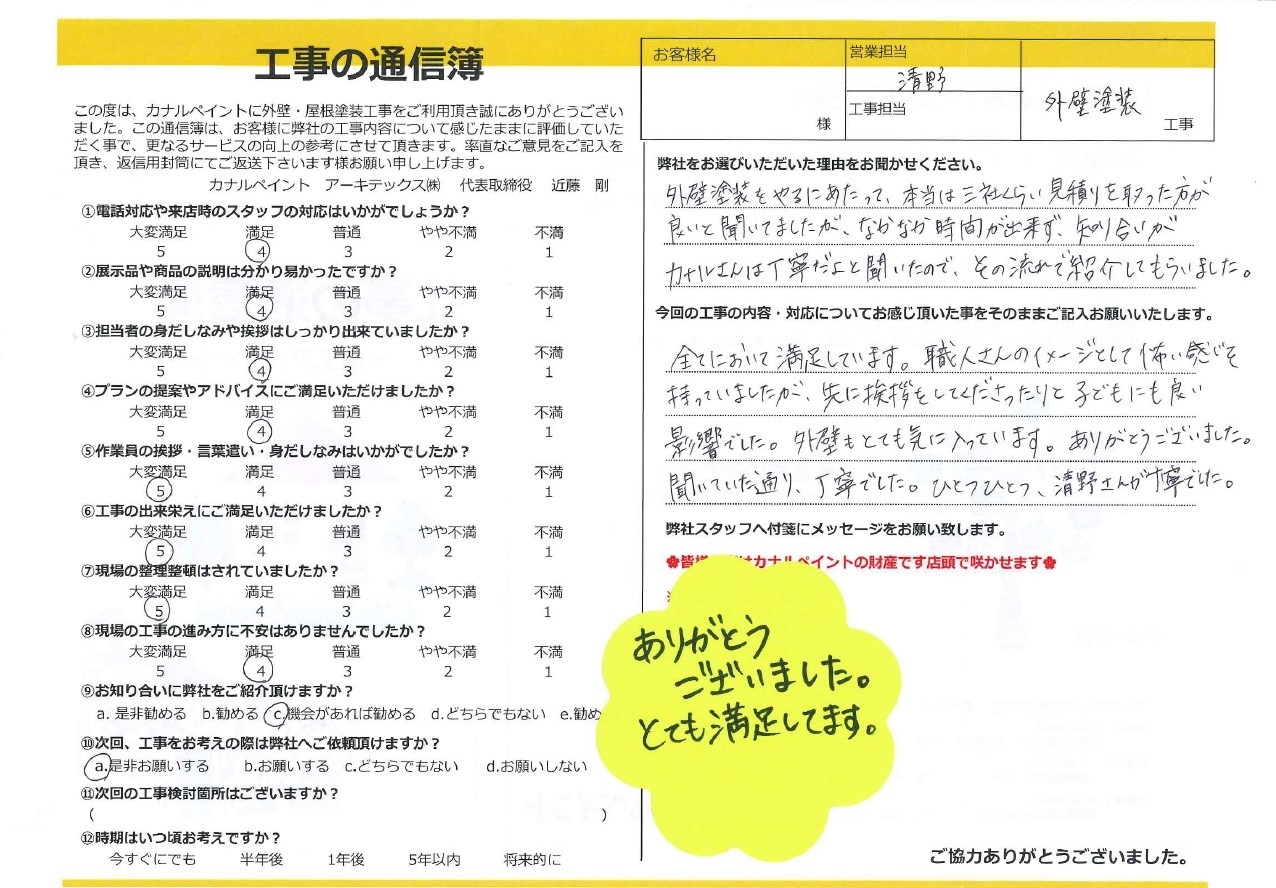 工事の通信簿
この度は、カナルペイントに外壁・屋根塗装工事をご利用頂き誠にありがとうござい
ました。この通信簿は、お客様に弊社の工事内容について感じたままに評価していた
だく事で、更なるサービスの向上の参考にさせて頂きます。率直なご意見をご記入を
頂き、返信用封筒にてご返送下さいます様お願い申し上げます。
カナルペイント アーキテックス㈱ 代表取締役 近藤 剛
①電話対応や来店時のスタッフの対応はいかがでしょうか?
大変満足 満足 普通 やや不満 不満
5 4 3 2 1
②展示品や商品の説明は分かり易かったですか?
大変満足 満足 普通 やや不満 不満
5 4 3 2 1
③担当者の身だしなみや挨拶はしっかり出来ていましたか?
大変満足 満足 普通 やや不満 不満
5 4 3 2 1
④プランの提案やアドバイスにご満足いただけましたか?
大変満足 満足 普通 やや不満 不満
5 4 3 2 1
⑤作業員の挨拶・言葉遣い・身だしなみはいかがでしたか?
大変満足 満足 普通 やや不満 不満
5 4 3 2 1
⑥工事の出来栄えにご満足いただけましたか?
大変満足 満足 普通 やや不満 不満
5 4 3 2 1
⑦現場の整理整頓はされていましたか?
大変満足 満足 普通 やや不満 不満
5 4 3 2 1
⑧現場の工事の進み方に不安はありませんでしたか?
大変満足 満足 普通 やや不満 不満
5 4 3 2 1
⑨お知り合いに弊社をご紹介頂けますか?
a. 是非勧める b.勧める c.機会があれば勧める d.どちらでもない e.勧め
⑩次回、工事をお考えの際は弊社へご依頼頂けますか?
a.是非お願いする b.お願いする c.どちらでもない d.お願いしない
⑪次回の工事検討箇所はございますか?
( )
⑫時期はいつ頃お考えですか?
今すぐにでも 半年後 1年後 5年以内 将来的に
お客様名
様
営業担当
清野
工事担当
外壁塗装
工事
弊社をお選びいただいた理由をお聞かせください。
外壁塗装をやるにあたって、本当は三社くらい見積りを取った方が
良いと聞いてましたが、なかなか時間が出来ず、知り合いが
カナルさんは丁寧だよと聞いたので、その流れで紹介してもらいました。
今回の工事の内容・対応についてお感じ頂いた事をそのままご記入お願いいたします。
全てにおいて満足しています。職人さんのイメージとして怖い感じを
持っていましたが、先に挨拶をしてくださったりと子どもにも良い
影響でした。外壁もとても気に入っています。ありがとうございました。
聞いていた通り、丁寧でした。ひとつひとつ、清野さんが丁寧でした。
弊社スタッフへ付箋にメッセージをお願い致します。
✿皆様 はカナルペイントの財産です店頭で咲かせます✿
ありがとう
ございました。
とても満足してます。
ご協力ありがとうございました。